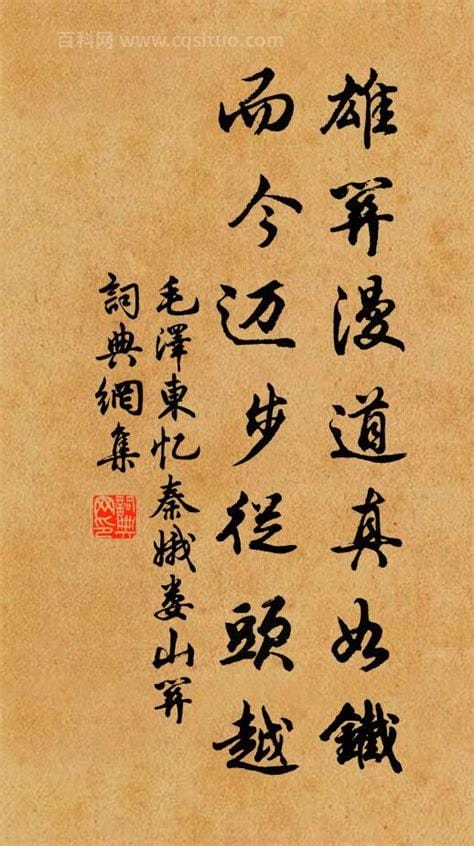 百科网 www.cqsituo.com
雄関漫道真如鐵
而今迈步從頭越
毛澤東忆秦娥娄山関
詞典網集
詞典
网印